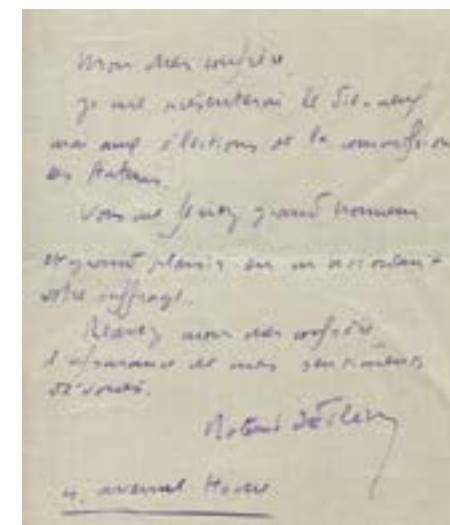 Mon cher confrère,
je me présenterai le dix-neuf
mai aux élections de la commission
des Auteurs.
Vous me feriez grand honneur
et grand plaisir en m'accordant
votre suffrage.
Recevez mon cher confrère
l'assurance de mes sentiments
dévoués.
Robert
4, avenue Hoche